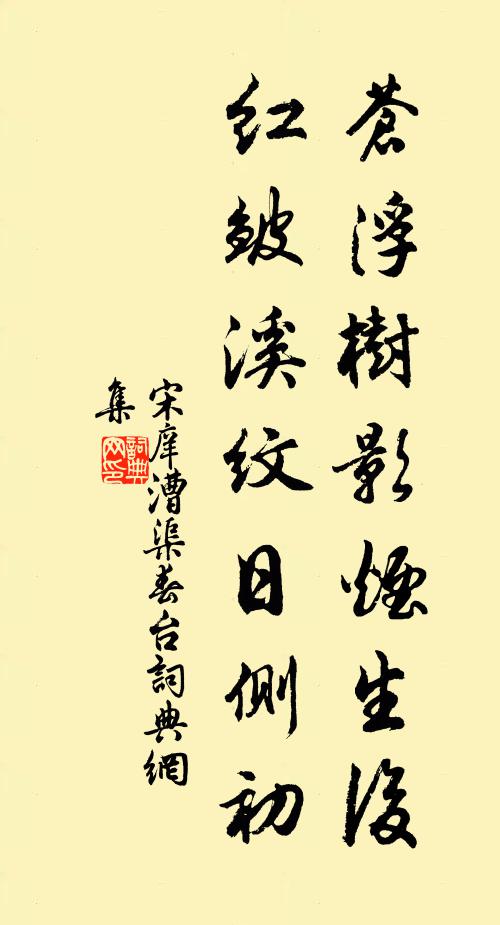 蒼浮樹影煙生後
紅皺溪紋日側初
宋庠漕渠春台詞典網
集
詞典网印